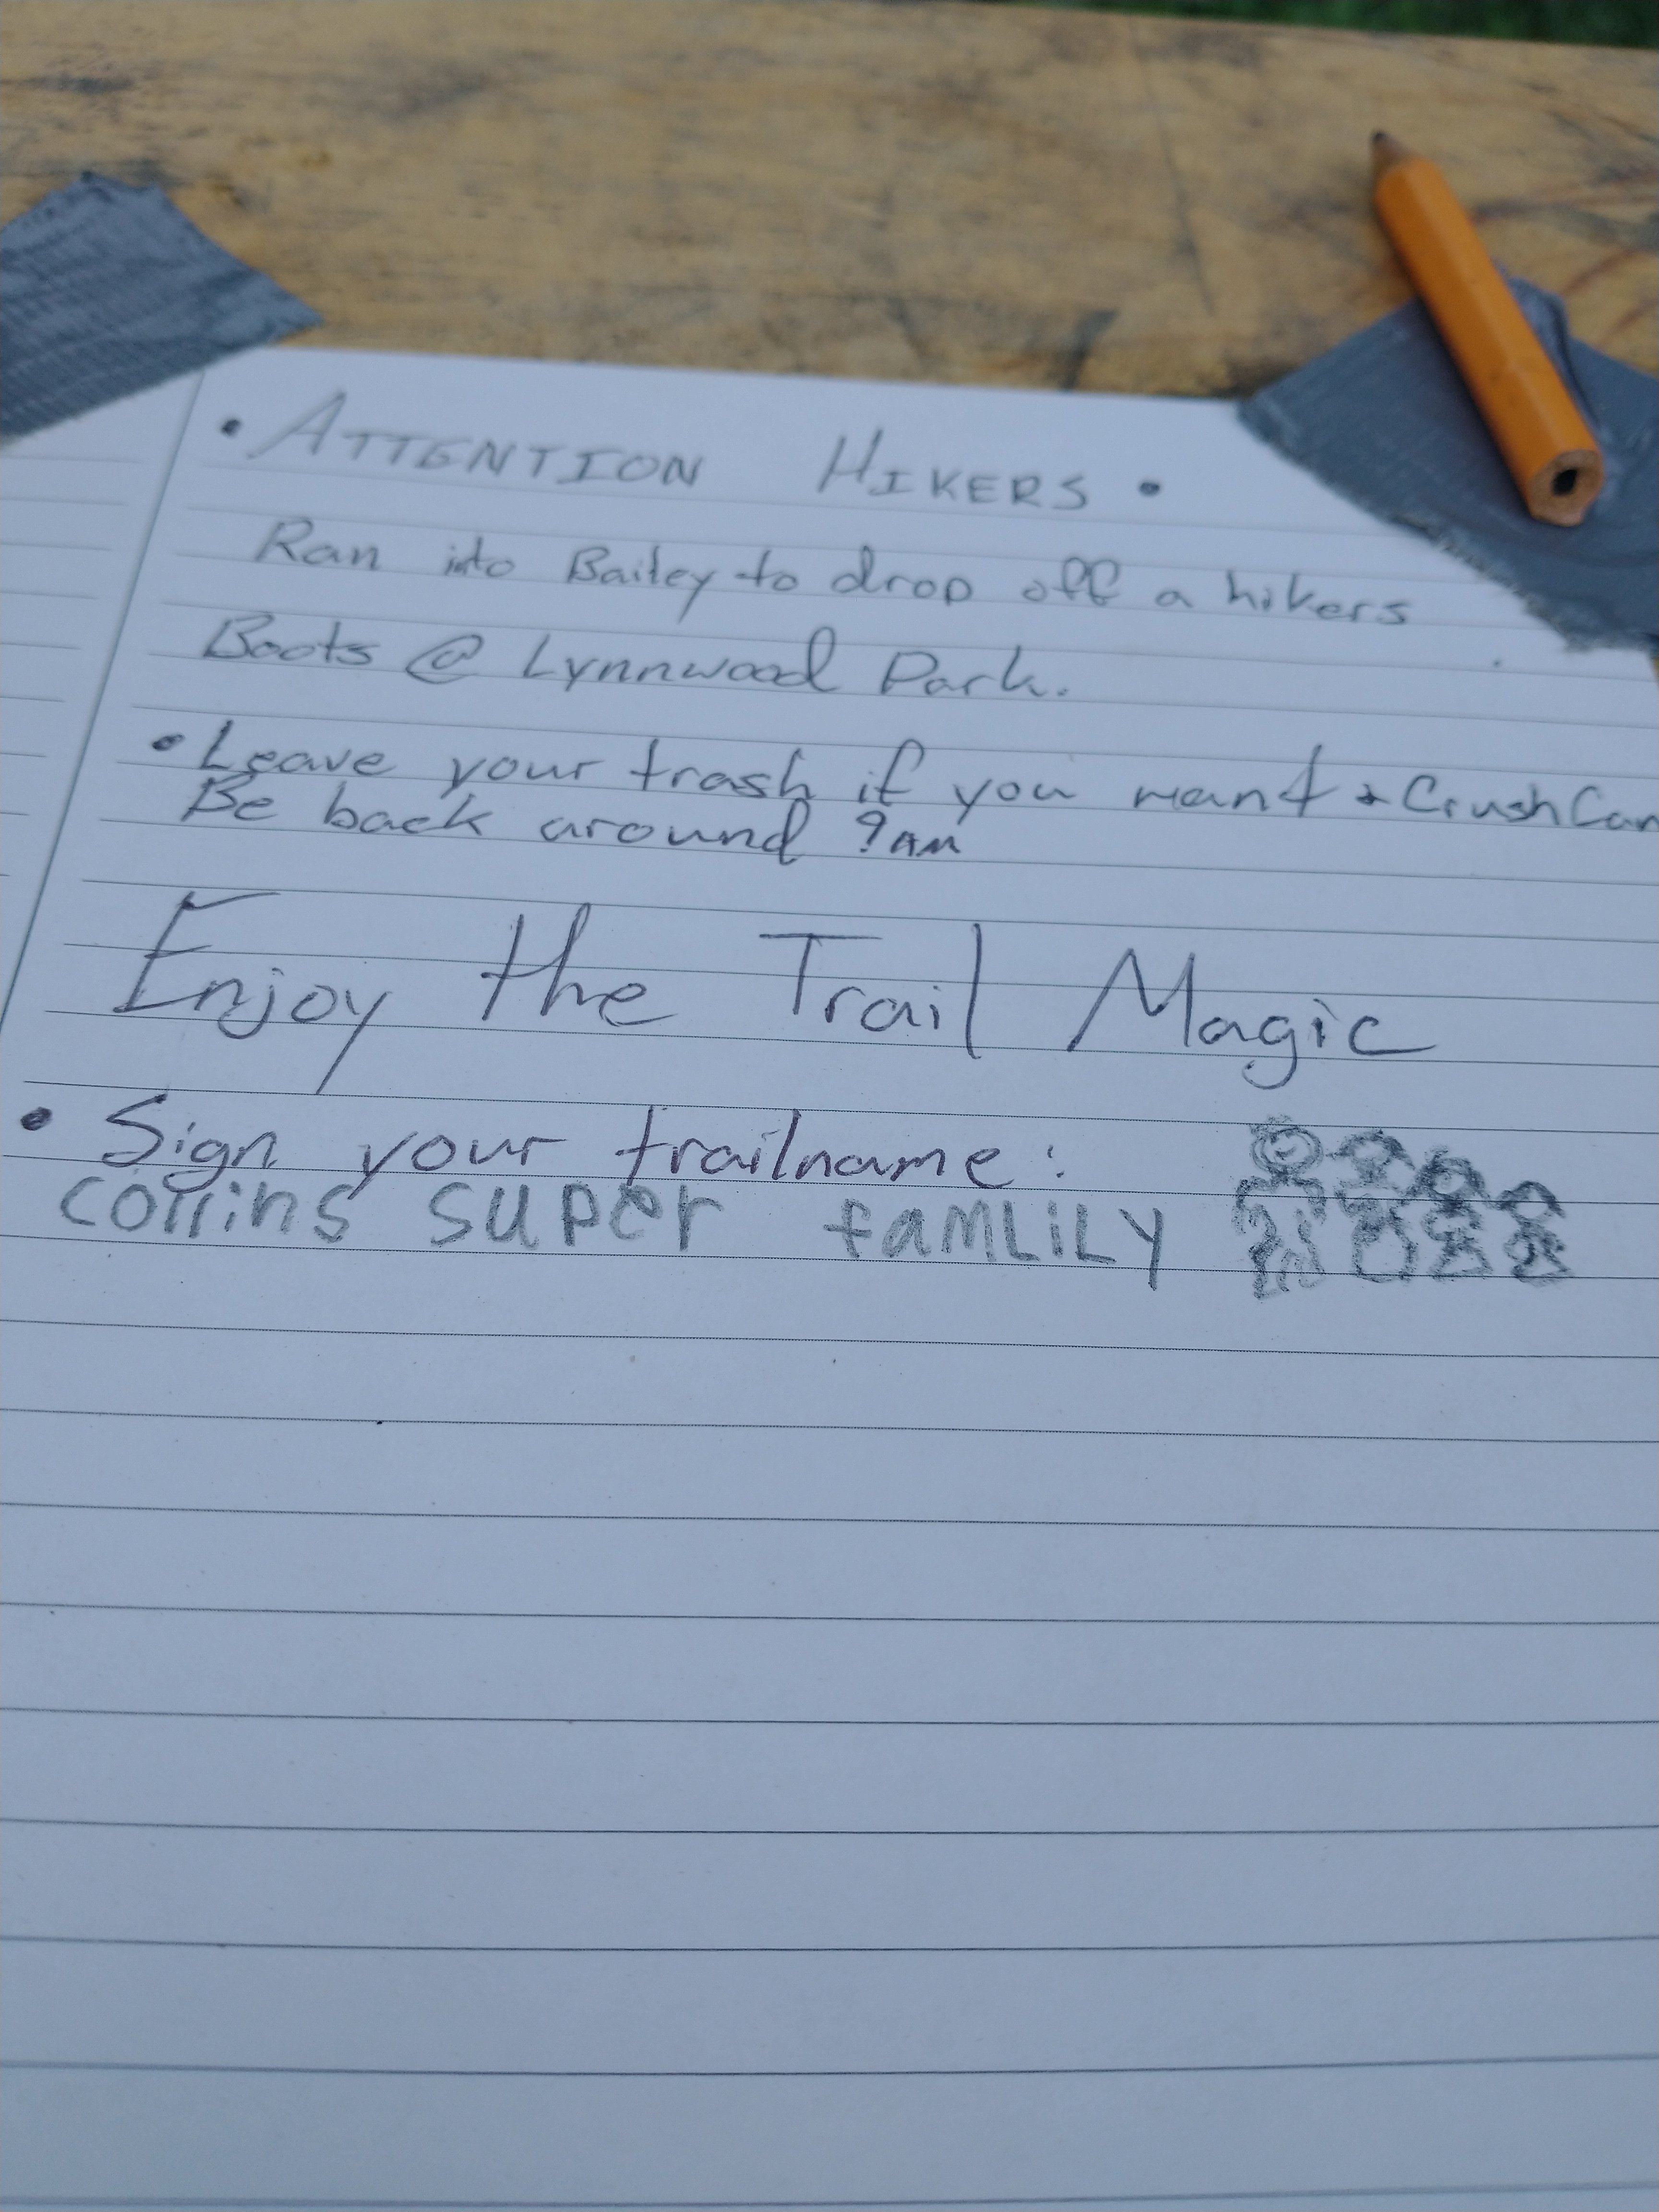 • ATTENTION HIKERS •
Ran into Bailey to drop off a hikers
Boots @ Lynnwood Park.
• Leave your trash if you want + Crush Can
Be back around 9am
Enjoy the Trail Magic
• Sign your trailname:
collins super famLiLy